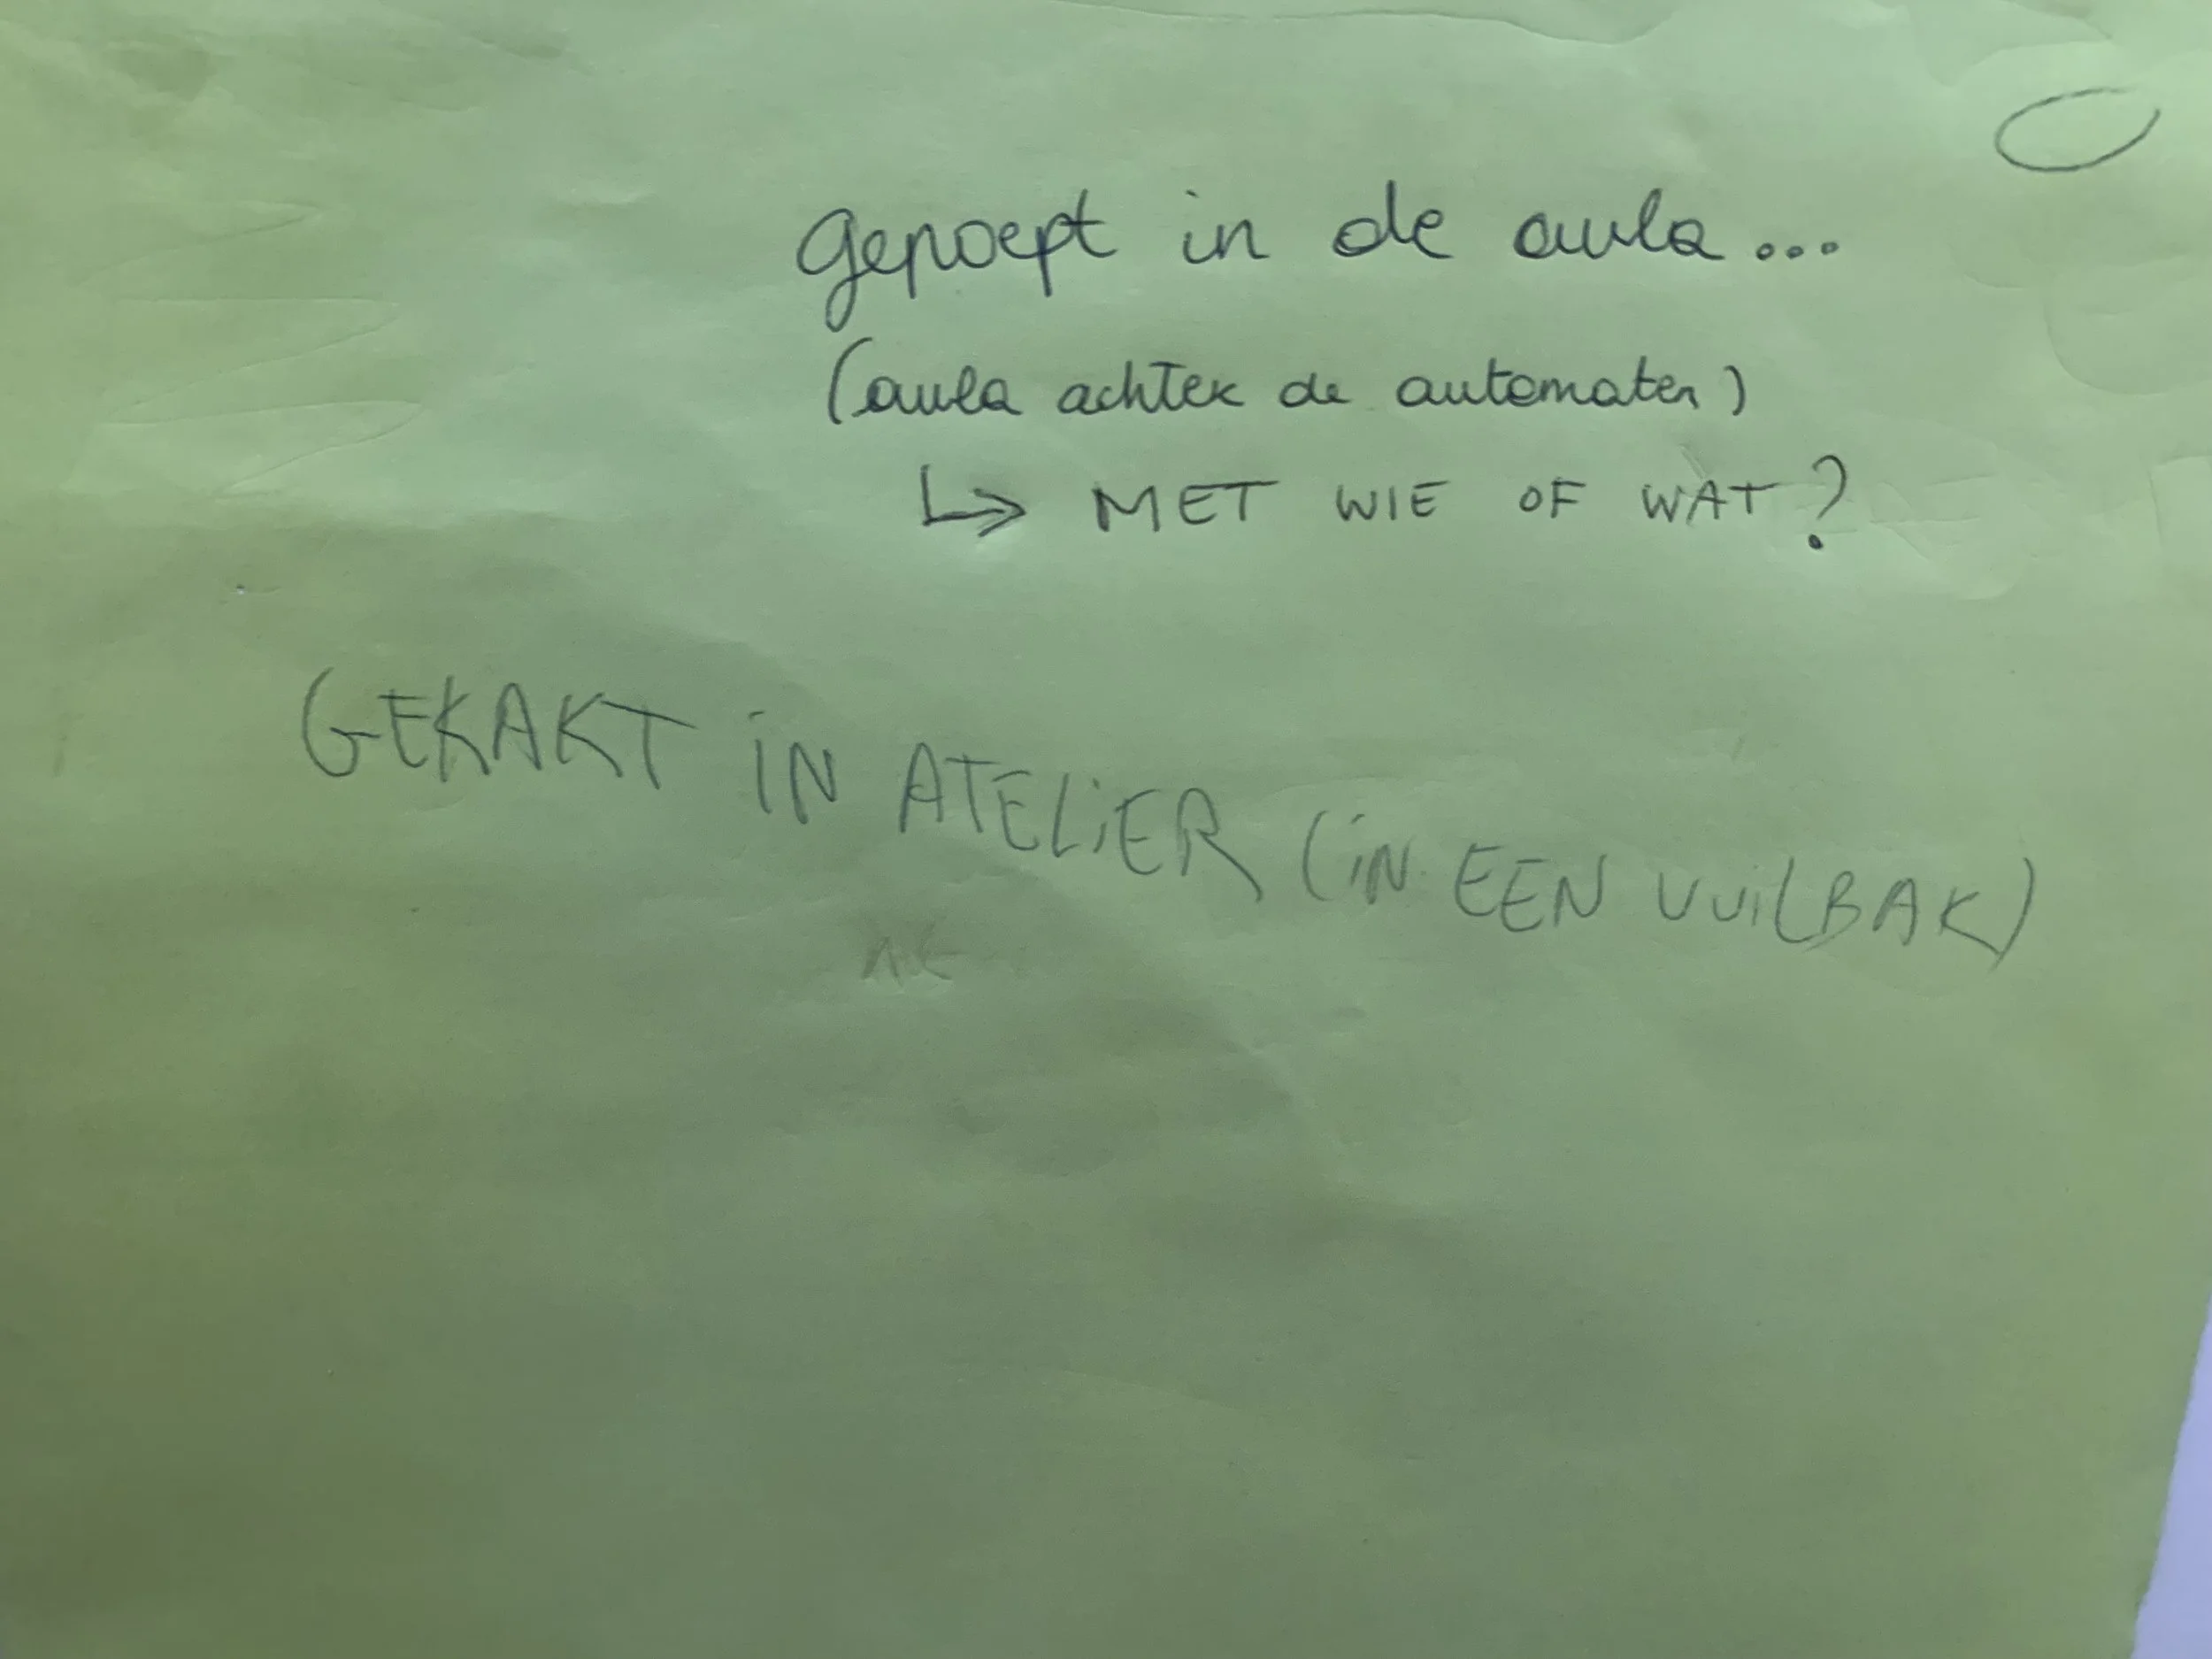 gepoept in de aula...
(aula achter de automaten)
↳ MET WIE OF WAT?
GEKAKT IN ATELIER (IN EEN VUILBAK)